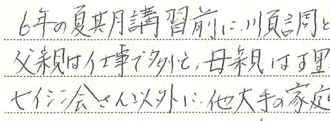 6年の夏期講習前に、順調と
父親は仕事で多忙と、母親は
セイシン会さん以外に、他大手の家庭